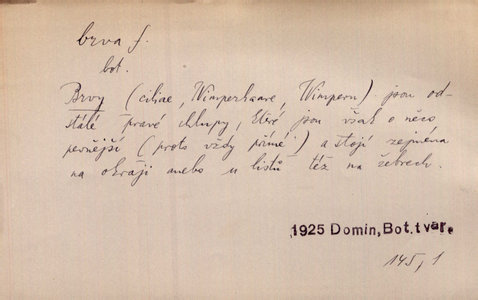 brva f.
bot.
Brvy (ciliae, Wimperhaare, Wimpern) jsou od-
stálé pravé chlupy, které jsou však o něco
pevnější (proto vždy přímé) a stojí zejména
na okraji anebo u listů též na žebrech.
1925 Domin, Bot. tvar.
145, 1